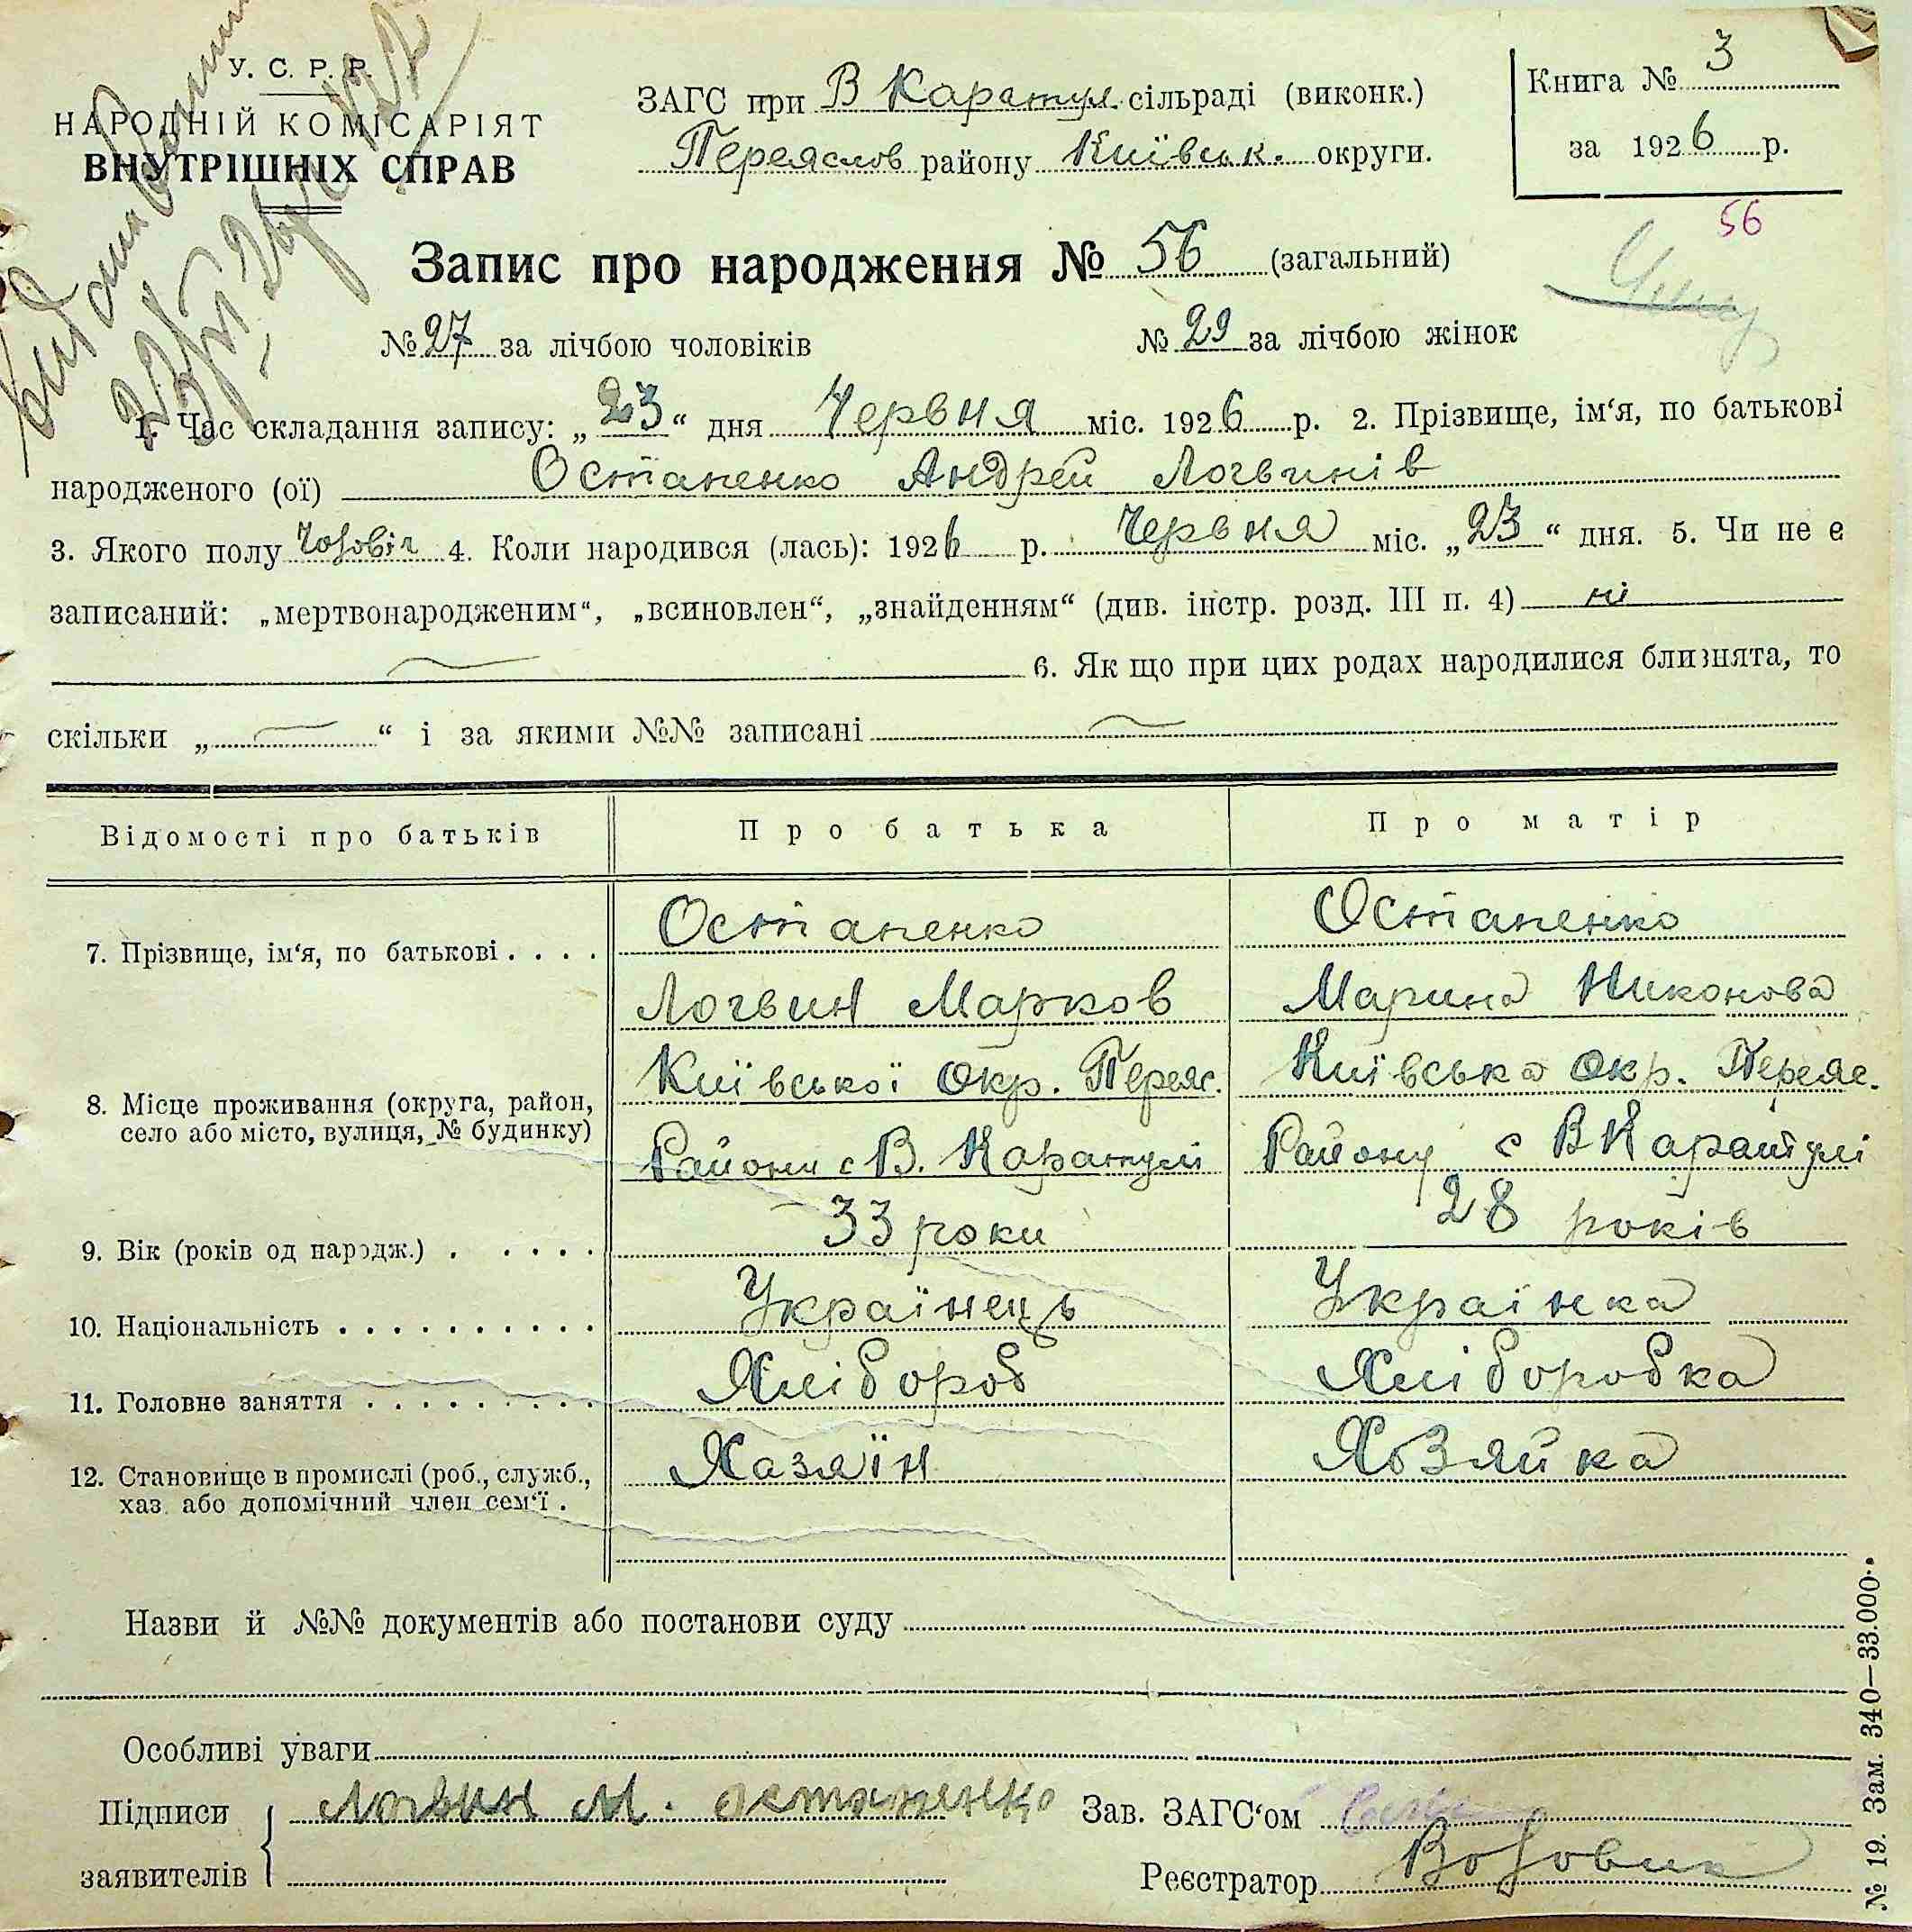 У. С. Р. Р.
НАРОДНІЙ КОМІСАРІЯТ
ВНУТРІШНІХ СПРАВ
ЗАГС при В Каратул сільраді (виконк.)
Переяслов району Київськ. округи.
Книга № 3
за 1926 р.
56
Запис про народження № 56 (загальний)
№ 27 за лічбою чоловіків № 29 за лічбою жінок
1. Час складання запису: „23“ дня Червня міс. 1926 р. 2. Прізвище, ім‘я, по батькові
народженого (ої) Остапенко Андрей Логвинів
3. Якого полу чоловік 4. Коли народився (лась): 1926 р. Червня міс. „23“ дня. 5. Чи не є
записаний: „мертвонародженим“, „всиновлен“, „знайденням“ (див. інстр. розд. III п. 4) ні
6. Як що при цих родах народилися близнята, то
скільки „ “ і за якими №№ записані
Відомості про батьків Про батька Про матір
7. Прізвище, ім‘я, по батькові . . . . Остапенко Остапенко
Логвин Марков Марина Никонова
8. Місце проживання (округа, район, Київської Окр. Переяс. Київська Окр. Переяс.
село або місто, вулиця, № будинку) Району с В. Каратулі Району с В Каратулі
9. Вік (років од народж.) . . . . . 33 роки 28 років
10. Національність . . . . . . . . . . Українець Українка
11. Головне заняття . . . . . . . . . Хлібороб Хліборобка
12. Становище в промислі (роб., служб., Хазяїн Хозяйка
хаз. або допомічний член сем‘ї .
Назви й №№ документів або постанови суду
Особливі уваги
Підписи Логвин М. Остапенко Зав. ЗАГС‘ом
заявителів Реєстратор Воловик
№ 19. Зам. 340—33.000.